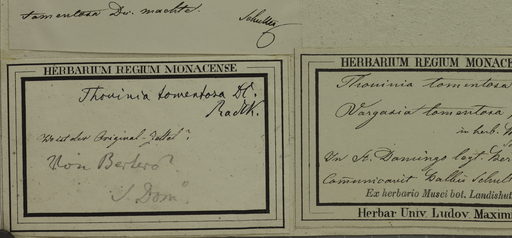 tomentosa Dec. machte.
Schultes
HERBARIUM REGIUM MONACENSE
Thouinia tomentosa DC.
Radlk.
Wo ist der Original-Zettel?
Von Bertero?
S. Dom
HERBARIUM REGIUM MONACE
Thouinia tomentosa
Vargasia tomentosa
in herb.
In St. Domingo legt. Ber
Communicavit Schult
Ex herbario Musei bot. Landishut
Herbar Univ. Ludov. Maximi